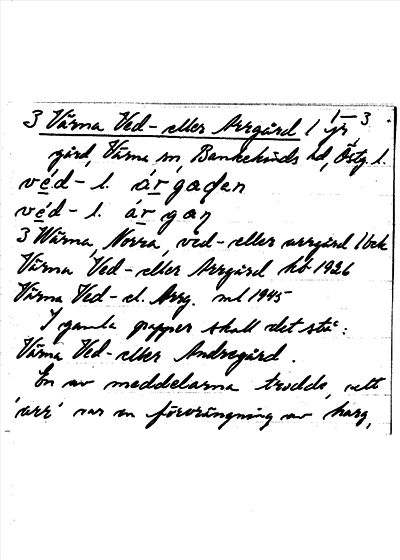 3 Värna Ved- eller Arrgård 1 1-3
gård, Värna sn, Bankekinds hd, Östg. l.
véd- l. árgaden
véd- l. árgan
3 Wärna, Norra, ved- eller arrgård
Värna Ved- eller Arrgård hb 1926
Värna Ved- el. Arrg. ml 1945
I gamla papper skall det stå:
Värna Ved- eller Andregård.
En av meddelarna trodde, att
'arr' var en förvrängning av harg,